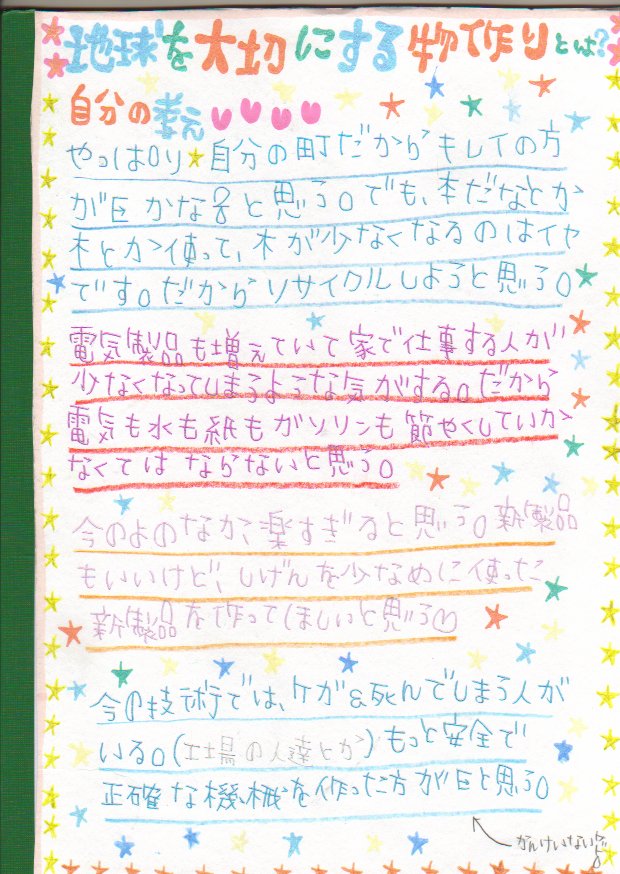 地球を大切にする物作りとは?
自分の考え
やっぱり自分の町だからキレイの方
が Eかな?と思う。でも、本だなとか
木とか使って、木が少なくなるのはイヤ
です。だからリサイクルしようと思う。
電気製品も増えていて家で仕事する人が
少なくなってしまうような気がする。だから
電気も水も紙もガソリンも節やくしていか
なくてはならないと思う。
今のよのなか、楽すぎると思う。新製品
もいいけど、しげんを少なめに使った
新製品を作ってほしいと思う
今の技術では、ケガ&死んでしまう人が
いる。(工場の人達とか)もっと安全で
正確な機械を作った方がEと思う。
かんけいない